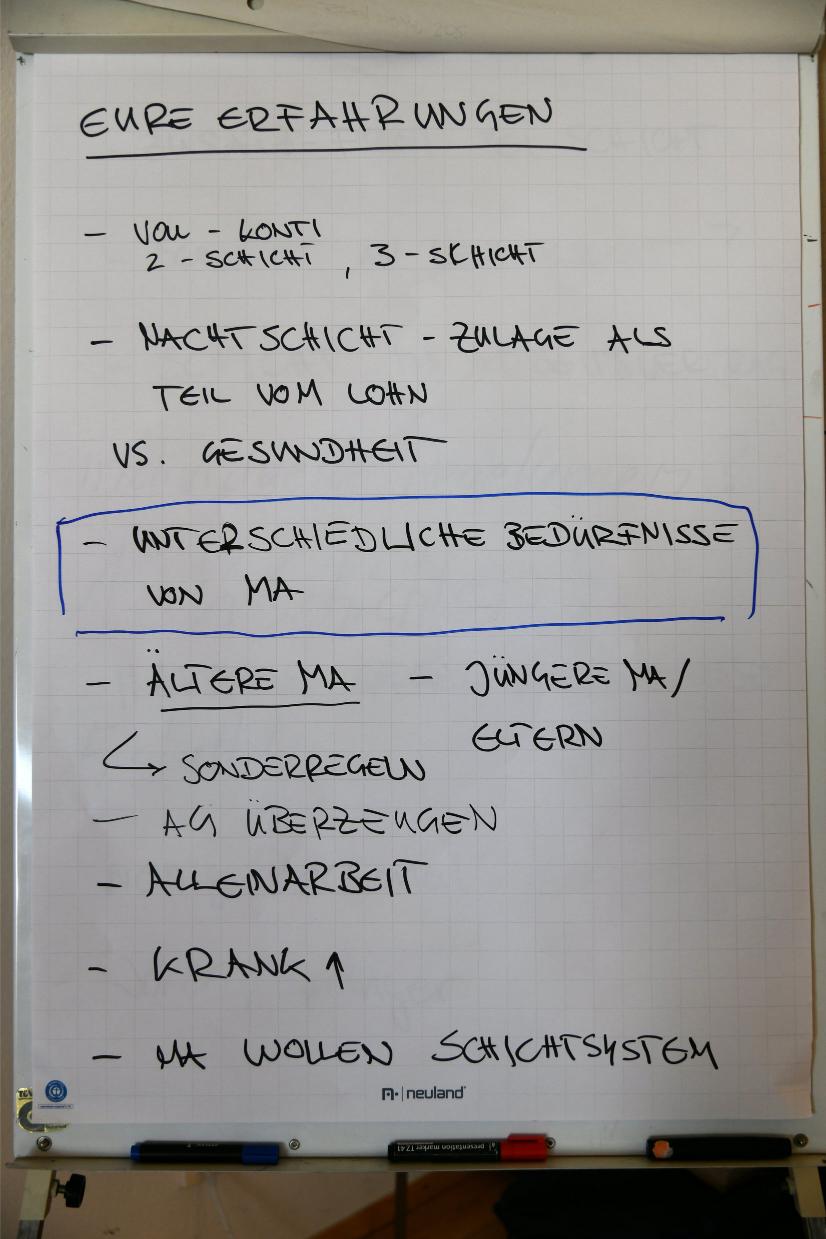 EURE ERFAHRUNGEN
- VOLL - KONTI
2 - SCHICHT , 3 - SCHICHT
- NACHTSCHICHT - ZULAGE ALS
TEIL VOM LOHN
VS. GESUNDHEIT
- UNTERSCHIEDLICHE BEDÜRFNISSE
VON MA
- ÄLTERE MA - JÜNGERE MA/
ELTERN
↳ SONDERREGELN
- AG ÜBERZEUGEN
- ALLEINARBEIT
- KRANK ↑
- MA WOLLEN SCHICHTSYSTEM
neuland
presentation marker TZ 41